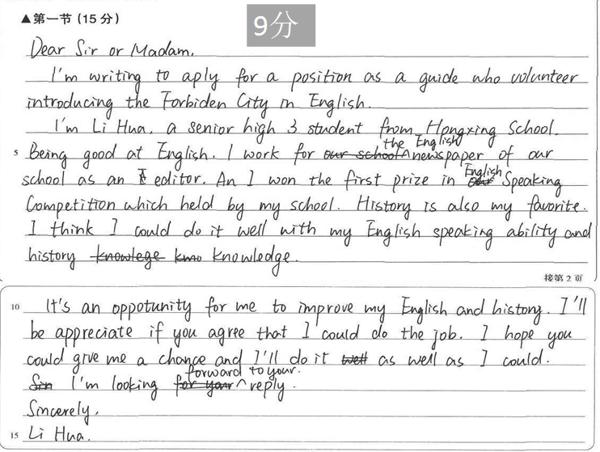 ▲第一节(15分)
9分
Dear Sir or Madam.
I'm writing to aply for a position as a guide who volunteer
introducing the Forbiden City in English.
I'm Li Hua, a senior high 3 student from Hongxing School.
5 Being good at English. I work for our school the English newspaper of our
school as an editor. An I won the first prize in English Speaking
Competition which held by my school. History is also my favorite.
I think I could do it well with my English speaking ability and
history knowlege kno knowledge.
接第2页
10 It's an oppotunity for me to improve my English and history. I'll
be appreciate if you agree that I could do the job. I hope you
could give me a chance and I'll do it well as well as I could.
Sin I'm looking for your forward to your reply.
Sincerely,
15 Li Hua.